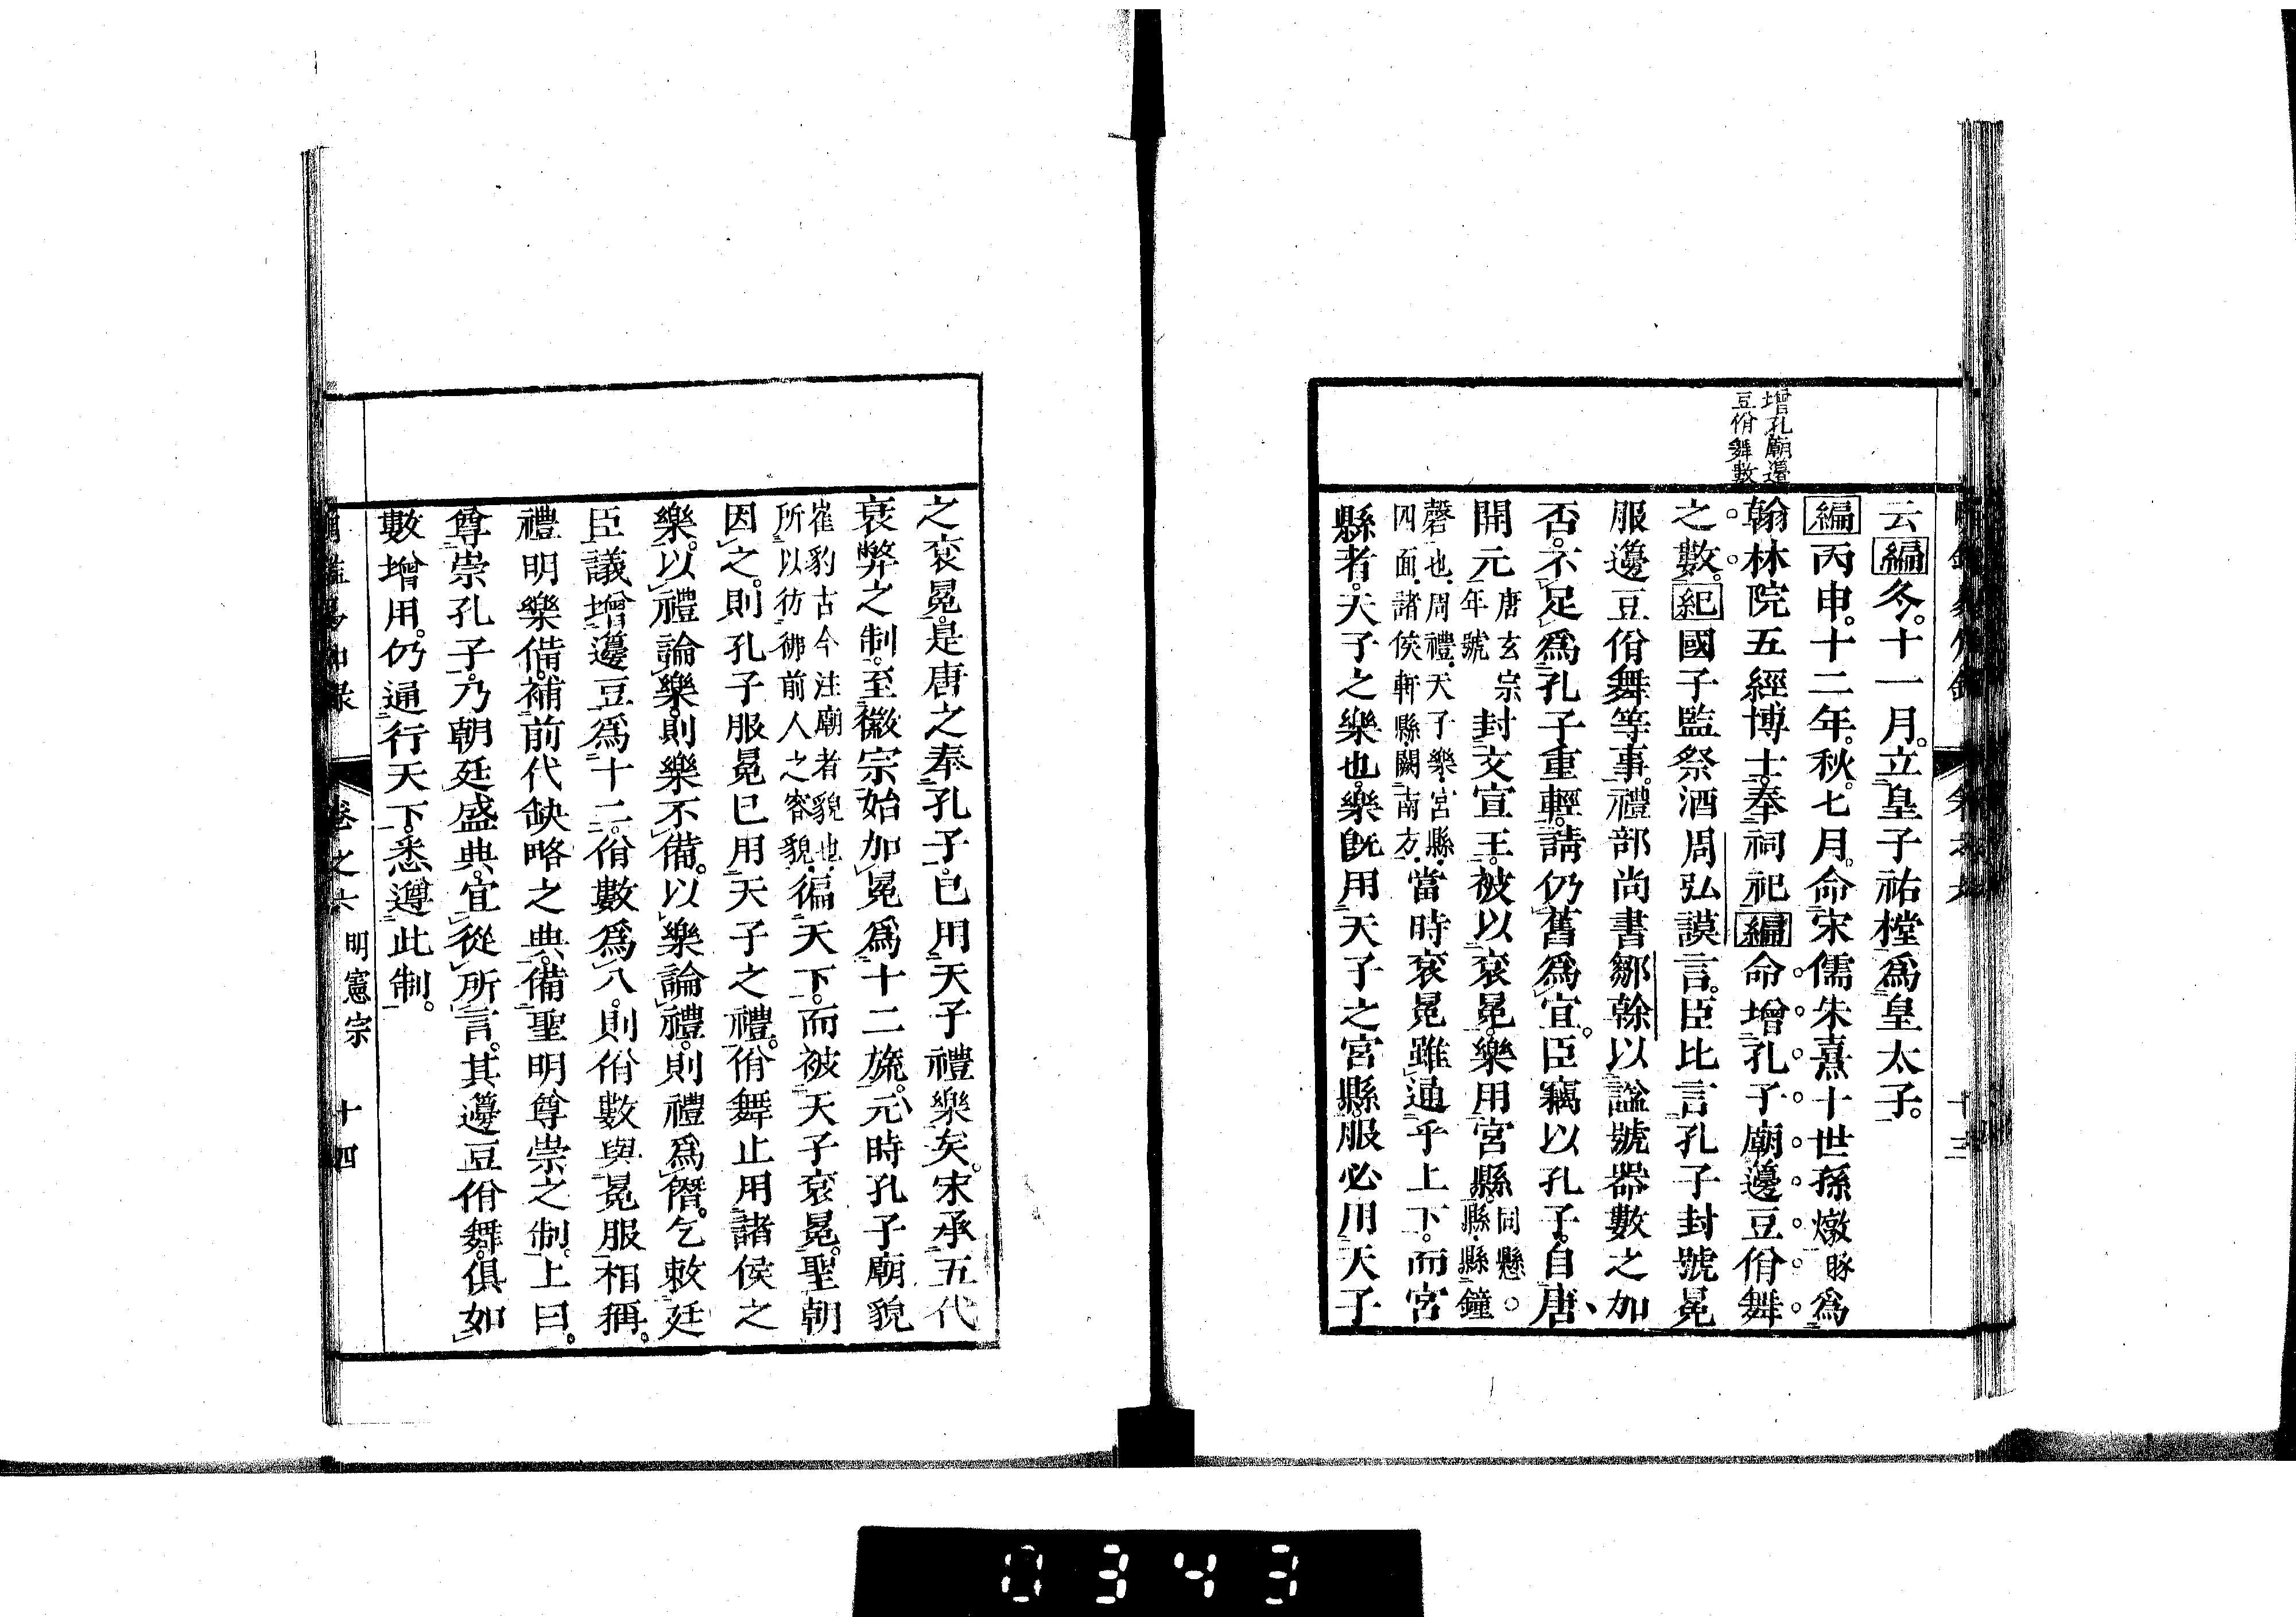 增孔廟籩
豆佾舞數
云編冬。十一月。立皇子祐樘爲皇太子。
編丙申。十二年。秋。七月。命宋儒朱熹十世孫燉豚爲
翰林院五經博士。奉祠祀編命增孔子廟籩豆佾舞
之數。紀國子監祭酒周弘謨言。臣比言孔子封號冕
服籩豆佾舞等事。禮部尚書鄒榦以謚號器數之加
否。不足爲孔子重輕。請仍舊爲宜。臣竊以孔子。自唐、
開元唐玄宗年號封文宣王。被以衮冕。樂用宮縣。同懸。縣縣鐘
磬也周禮天子樂宮縣四面諸侯軒縣闕南方當時衮冕雖通乎上下。而宮
縣者。天子之樂也。樂旣用天子之宮縣。服必用天子
之衮冕。是唐之奉孔子。已用天子禮樂矣。宋承五代
衰弊之制。至徽宗始加冕爲十二旒。元時孔子廟貌
崔豹古今注廟者貌也所以彷彿前人之容貌徧天下。而被天子衮冕。聖朝
因之。則孔子服冕已用天子之禮。佾舞止用諸侯之
樂。以禮論樂。則樂不備。以樂論禮。則禮爲僭。乞敕廷
臣議增籩豆爲十二。佾數爲八。則佾數與冕服相稱。
禮明樂備。補前代缺略之典。備聖明尊崇之制。上曰。
尊崇孔子。乃朝廷盛典。宜從所言。其籩豆佾舞。俱如
數增用。仍通行天下。悉遵此制。
卷之六 明憲宗 十四
0343